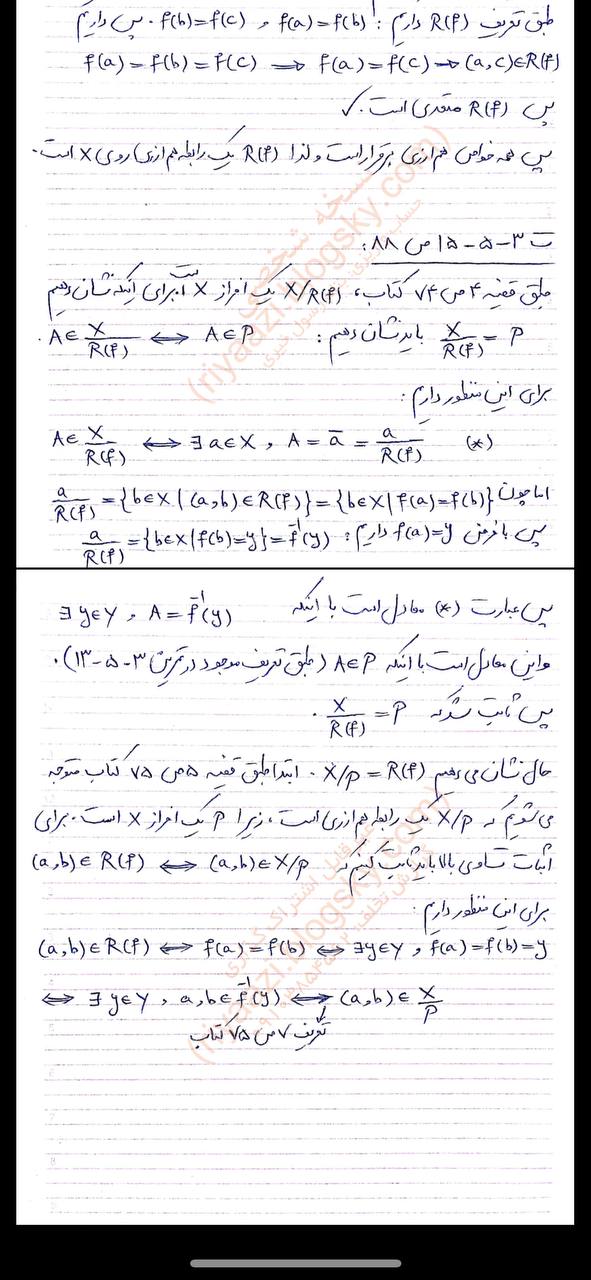 طبق تعریف R(f) داریم: f(a)=f(b) و f(b)=f(c). پس داریم
f(a) = f(b) = f(c) ⟹ f(a) = f(c) → (a,c)∈R(f)
پس R(f) متعدی است. ✓
پس همه خواص هم ارزی برقرار است و لذا R(f) یک رابطه هم ارزی روی X است.
ت ۳-۵-۱۵ ص ۸۸:
طبق قضیه ۴ ص ۷۴ کتاب، X/R(f) یک افراز X است. برای اینکه نشان دهیم
X/R(f) = P باید نشان دهیم: A∈ X/R(f) ⟺ A∈P.
برای این منظور داریم:
A∈ X/R(f) ⟺ ∃a∈X , A = ā = a/R(f) (*)
اما چون a/R(f) = {b∈X | (a,b)∈R(f)} = {b∈X | f(a)=f(b)}
پس با فرض f(a)=y داریم: a/R(f) = {b∈X | f(b)=y} = f⁻¹(y)
پس عبارت (*) معادل است با اینکه ∃y∈Y , A = f⁻¹(y)
و این معادل است با اینکه A∈P (طبق تعریف موجود در تمرین ۳-۵-۱۳).
پس ثابت شد که X/R(f) = P.
حال نشان می دهیم X/P = R(f). ابتدا طبق قضیه ۵ ص ۷۵ کتاب متوجه
می شویم که X/P یک رابطه هم ارزی است، زیرا P یک افراز X است. برای
اثبات تساوی بالا باید ثابت کنیم که (a,b)∈R(f) ⟺ (a,b)∈X/P
برای این منظور داریم:
(a,b)∈R(f) ⟺ f(a)=f(b) ⟺ ∃y∈Y , f(a)=f(b)=y
⟺ ∃y∈Y , a,b∈f⁻¹(y) ⟺ (a,b)∈ X/P
تعریف ۷ ص ۷۵ کتاب
نسخه شخصی
(riyaazi.blogsky.com)
(riyaazi.blogsky.com)